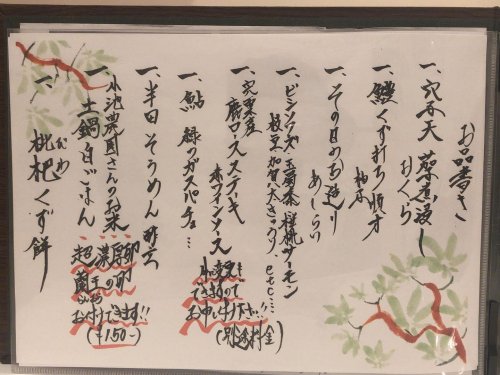 お品書き
一、穴子天 蒸煮浸し
おくら
一、鱧くず打ち 順才
柚子
一、その日のお造り
あしらい
一、ビシソワーズ 玉蜀黍 桜桃 サーモン
枝豆 加賀太きゅうり etc...
一、宍粟産
鹿ロースステーキ
赤ワインソース
大変!
できますので
お申し付け下さい!!
(別途料金)
一、鮎 緑のガスパチョ...
一、半田そうめん
一、小池農園さんのお米
土鍋白ごはん
超濃厚卵
蔵王の
お付けできます!!
(+150-)
一、枇杷くず餅
びわ